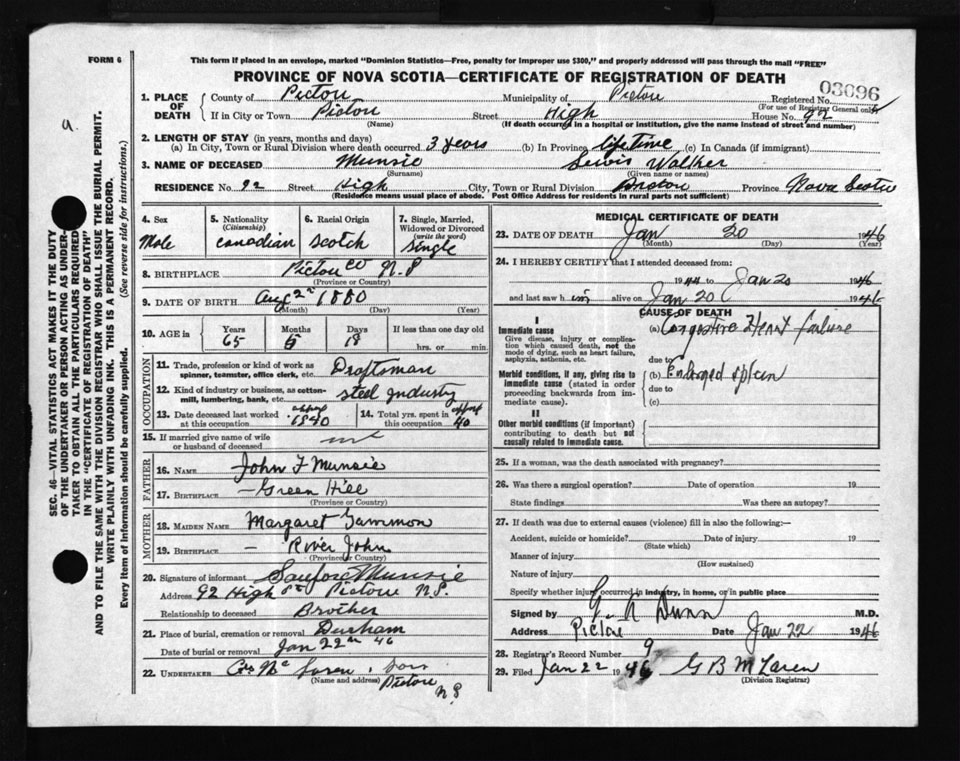 FORM 6
This form if placed in an envelope, marked "Dominion Statistics—Free, penalty for improper use $300," and properly addressed will pass through the mail "FREE"
PROVINCE OF NOVA SCOTIA—CERTIFICATE OF REGISTRATION OF DEATH
03696
SEC. 46—VITAL STATISTICS ACT MAKES IT THE DUTY
OF THE UNDERTAKER OR PERSON ACTING AS UNDER-
TAKER TO OBTAIN ALL THE PARTICULARS REQUIRED
IN THE "CERTIFICATE OF REGISTRATION OF DEATH"
AND TO FILE THE SAME WITH THE DIVISION REGISTRAR WHO SHALL ISSUE THE BURIAL PERMIT.
WRITE PLAINLY WITH UNFADING INK. THIS IS A PERMANENT RECORD.
Every item of Information should be carefully supplied. (See reverse side for instructions.)
1. PLACE OF DEATH County of Pictou Municipality of Pictou Registered No.
(For use of Registrar General only)
If in City or Town Pictou Street High House No. 92
(Name) (If death occurred in a hospital or institution, give the name instead of street and number)
2. LENGTH OF STAY (in years, months and days)
(a) In City, Town or Rural Division where death occurred 3 years (b) In Province lifetime (c) In Canada (if immigrant)
3. NAME OF DECEASED Munsie Lewis Walker
(Surname) (Given name or names)
RESIDENCE No. 92 Street High City, Town or Rural Division Pictou Province Nova Scotia
(Residence means usual place of abode. Post Office Address for residents in rural parts not sufficient)
4. Sex Male
5. Nationality (Citizenship) Canadian
6. Racial Origin Scotch
7. Single, Married, Widowed or Divorced (write the word) Single
8. BIRTHPLACE Pictou Co N.S
(Province or County)
9. DATE OF BIRTH Aug 2nd 1880
(Month) (Day) (Year)
10. AGE in Years 65 Months 5 Days 18 If less than one day old
hrs. or min.
OCCUPATION
11. Trade, profession or kind of work as spinner, teamster, office clerk, etc. Draftsman
12. Kind of industry or business, as cotton-mill, lumbering, bank, etc. steel Industry
13. Date deceased last worked at this occupation 1940
14. Total yrs. spent in this occupation 40
15. If married give name of wife or husband of deceased
FATHER
16. NAME John F Munsie
17. BIRTHPLACE — Green Hill
(Province or Country)
MOTHER
18. MAIDEN NAME Margaret Gammon
19. BIRTHPLACE — River John
(Province or Country)
20. Signature of informant Sanford Munsie
Address 92 High St Pictou N.S.
Relationship to deceased Brother
21. Place of burial, cremation or removal Durham
Date of burial or removal Jan 22nd 46
22. UNDERTAKER
(Name and address) Pictou
N S
MEDICAL CERTIFICATE OF DEATH
23. DATE OF DEATH Jan 20 1946
(Month) (Day) (Year)
24. I HEREBY CERTIFY that I attended deceased from:
1944 to Jan 20 1946
and last saw him alive on Jan 20 1946
CAUSE OF DEATH
I
Immediate cause (a) Congestive Heart failure
Give disease, injury or complication which caused death, not the mode of dying, such as heart failure, asphyxia, asthenia, etc.
due to
Morbid conditions, if any, giving rise to immediate cause (stated in order proceeding backwards from immediate cause). (b) Enlarged spleen
due to
(c)
II
Other morbid conditions (if important) contributing to death but not causally related to immediate cause.
25. If a woman, was the death associated with pregnancy?
26. Was there a surgical operation? Date of operation 19
State findings Was there an autopsy?
27. If death was due to external causes (violence) fill in also the following:—
Accident, suicide or homicide? Date of injury 19
(State which)
Manner of injury
(How sustained)
Nature of injury
Specify whether injury occurred in industry, in home, or in public place
Signed by G A Dunn M.D.
Address Pictou Date Jan 22 1946
28. Registrar's Record Number 9
29. Filed Jan 22 1946 G B McLaren
(Division Registrar)